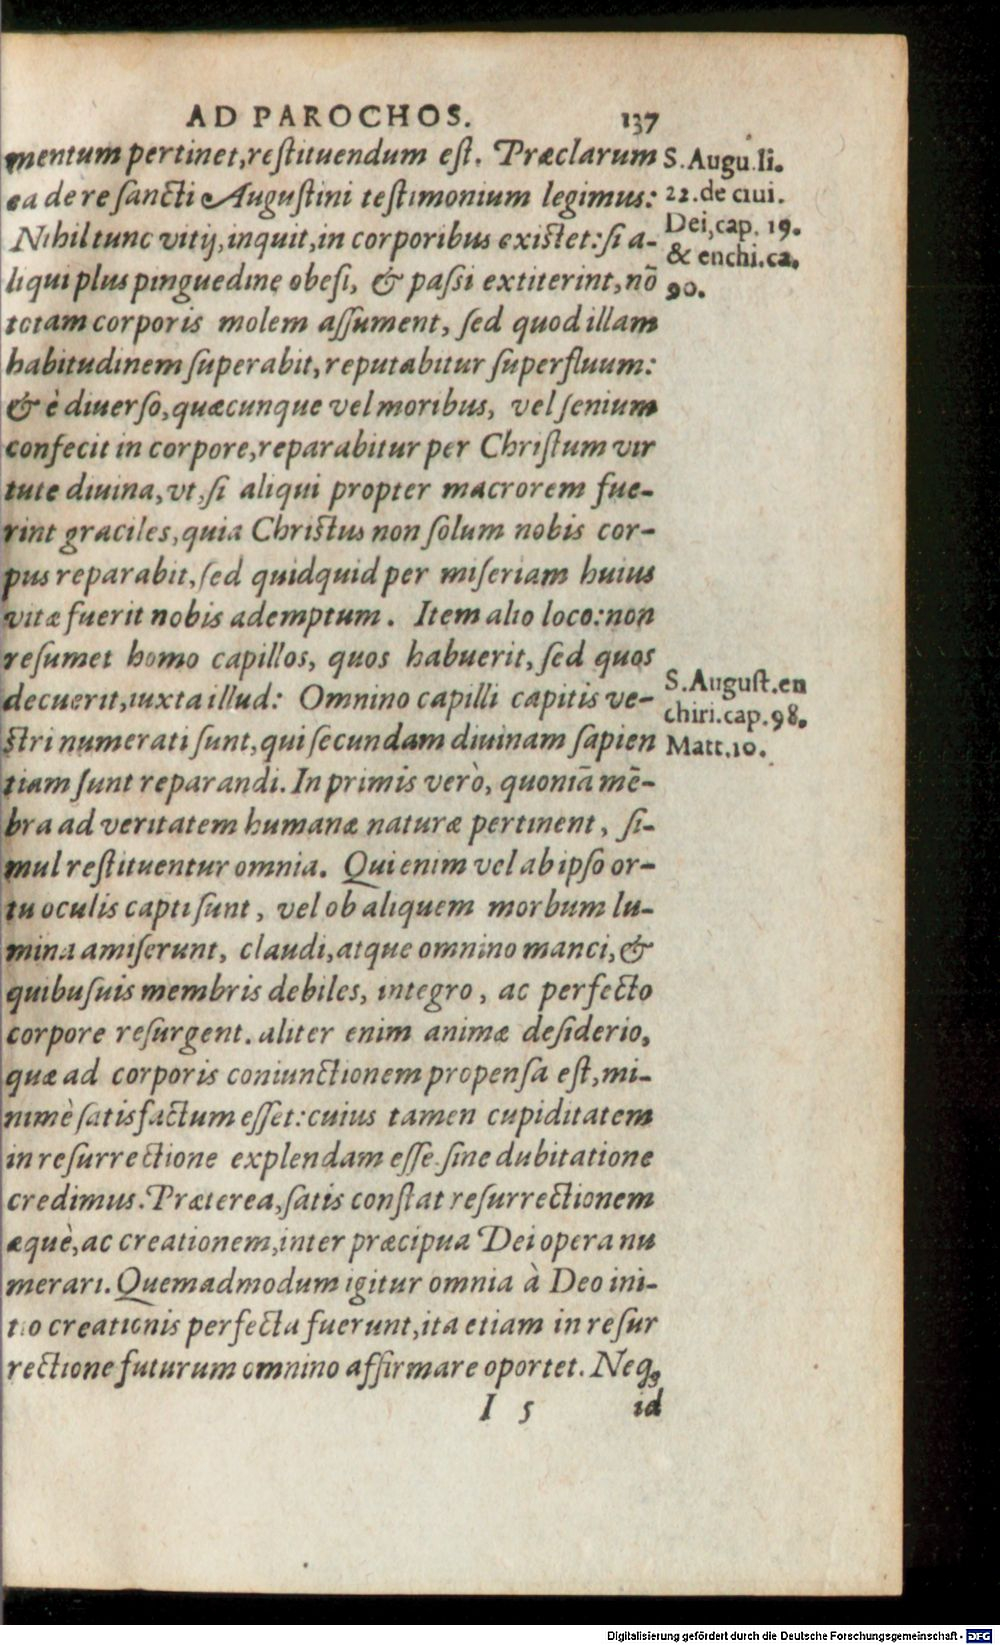 AD PAROCHOS. 137
mentum pertinet, reſtituendum eſt. Præclarum
ea de re ſancti Auguſtini teſtimonium legimus:
Nihil tunc vitij, inquit, in corporibus exiſtet: ſi a-
liqui plus pinguedine obeſi, & paſſi extiterint, nõ
totam corporis molem aſſument, ſed quod illam
habitudinem ſuperabit, reputabitur ſuperfluum:
& è diuerſo, quæcunque vel moribus, vel ſenium
confecit in corpore, reparabitur per Chriſtum vir
tute diuina, vt, ſi aliqui propter macrorem fue-
rint graciles, quia Chriſtus non ſolum nobis cor-
pus reparabit, ſed quidquid per miſeriam huius
vitæ fuerit nobis ademptum. Item alio loco: non
reſumet homo capillos, quos habuerit, ſed quos
decuerit, iuxta illud: Omnino capilli capitis ve-
ſtri numerati ſunt, qui ſecundam diuinam ſapien
tiam ſunt reparandi. In primis verò, quoniã mẽ-
bra ad veritatem humanæ naturæ pertinent, ſi-
mul reſtituentur omnia. Qui enim vel ab ipſo or-
tu oculis capti ſunt, vel ob aliquem morbum lu-
mina amiſerunt, claudi, atque omnino manci, &
quibuſuis membris debiles, integro, ac perfecto
corpore reſurgent. aliter enim animæ deſiderio,
quæ ad corporis coniunctionem propenſa eſt, mi-
nimè ſatisfactum eſſet: cuius tamen cupiditatem
in reſurrectione explendam eſſe ſine dubitatione
credimus. Præterea, ſatis conſtat reſurrectionem
æquè, ac creationem, inter præcipua Dei opera nu
merari. Quemadmodum igitur omnia à Deo ini-
tio creationis perfecta fuerunt, ita etiam in reſur
rectione futurum omnino affirmare oportet. Neq;
I 5 id
S. Augu. li.
22. de ciui.
Dei, cap. 19.
& enchi. ca.
90.
S. Auguſt. en
chiri. cap. 98.
Matt. 10.
Digitalisierung gefördert durch die Deutsche Forschungsgemeinschaft - DFG